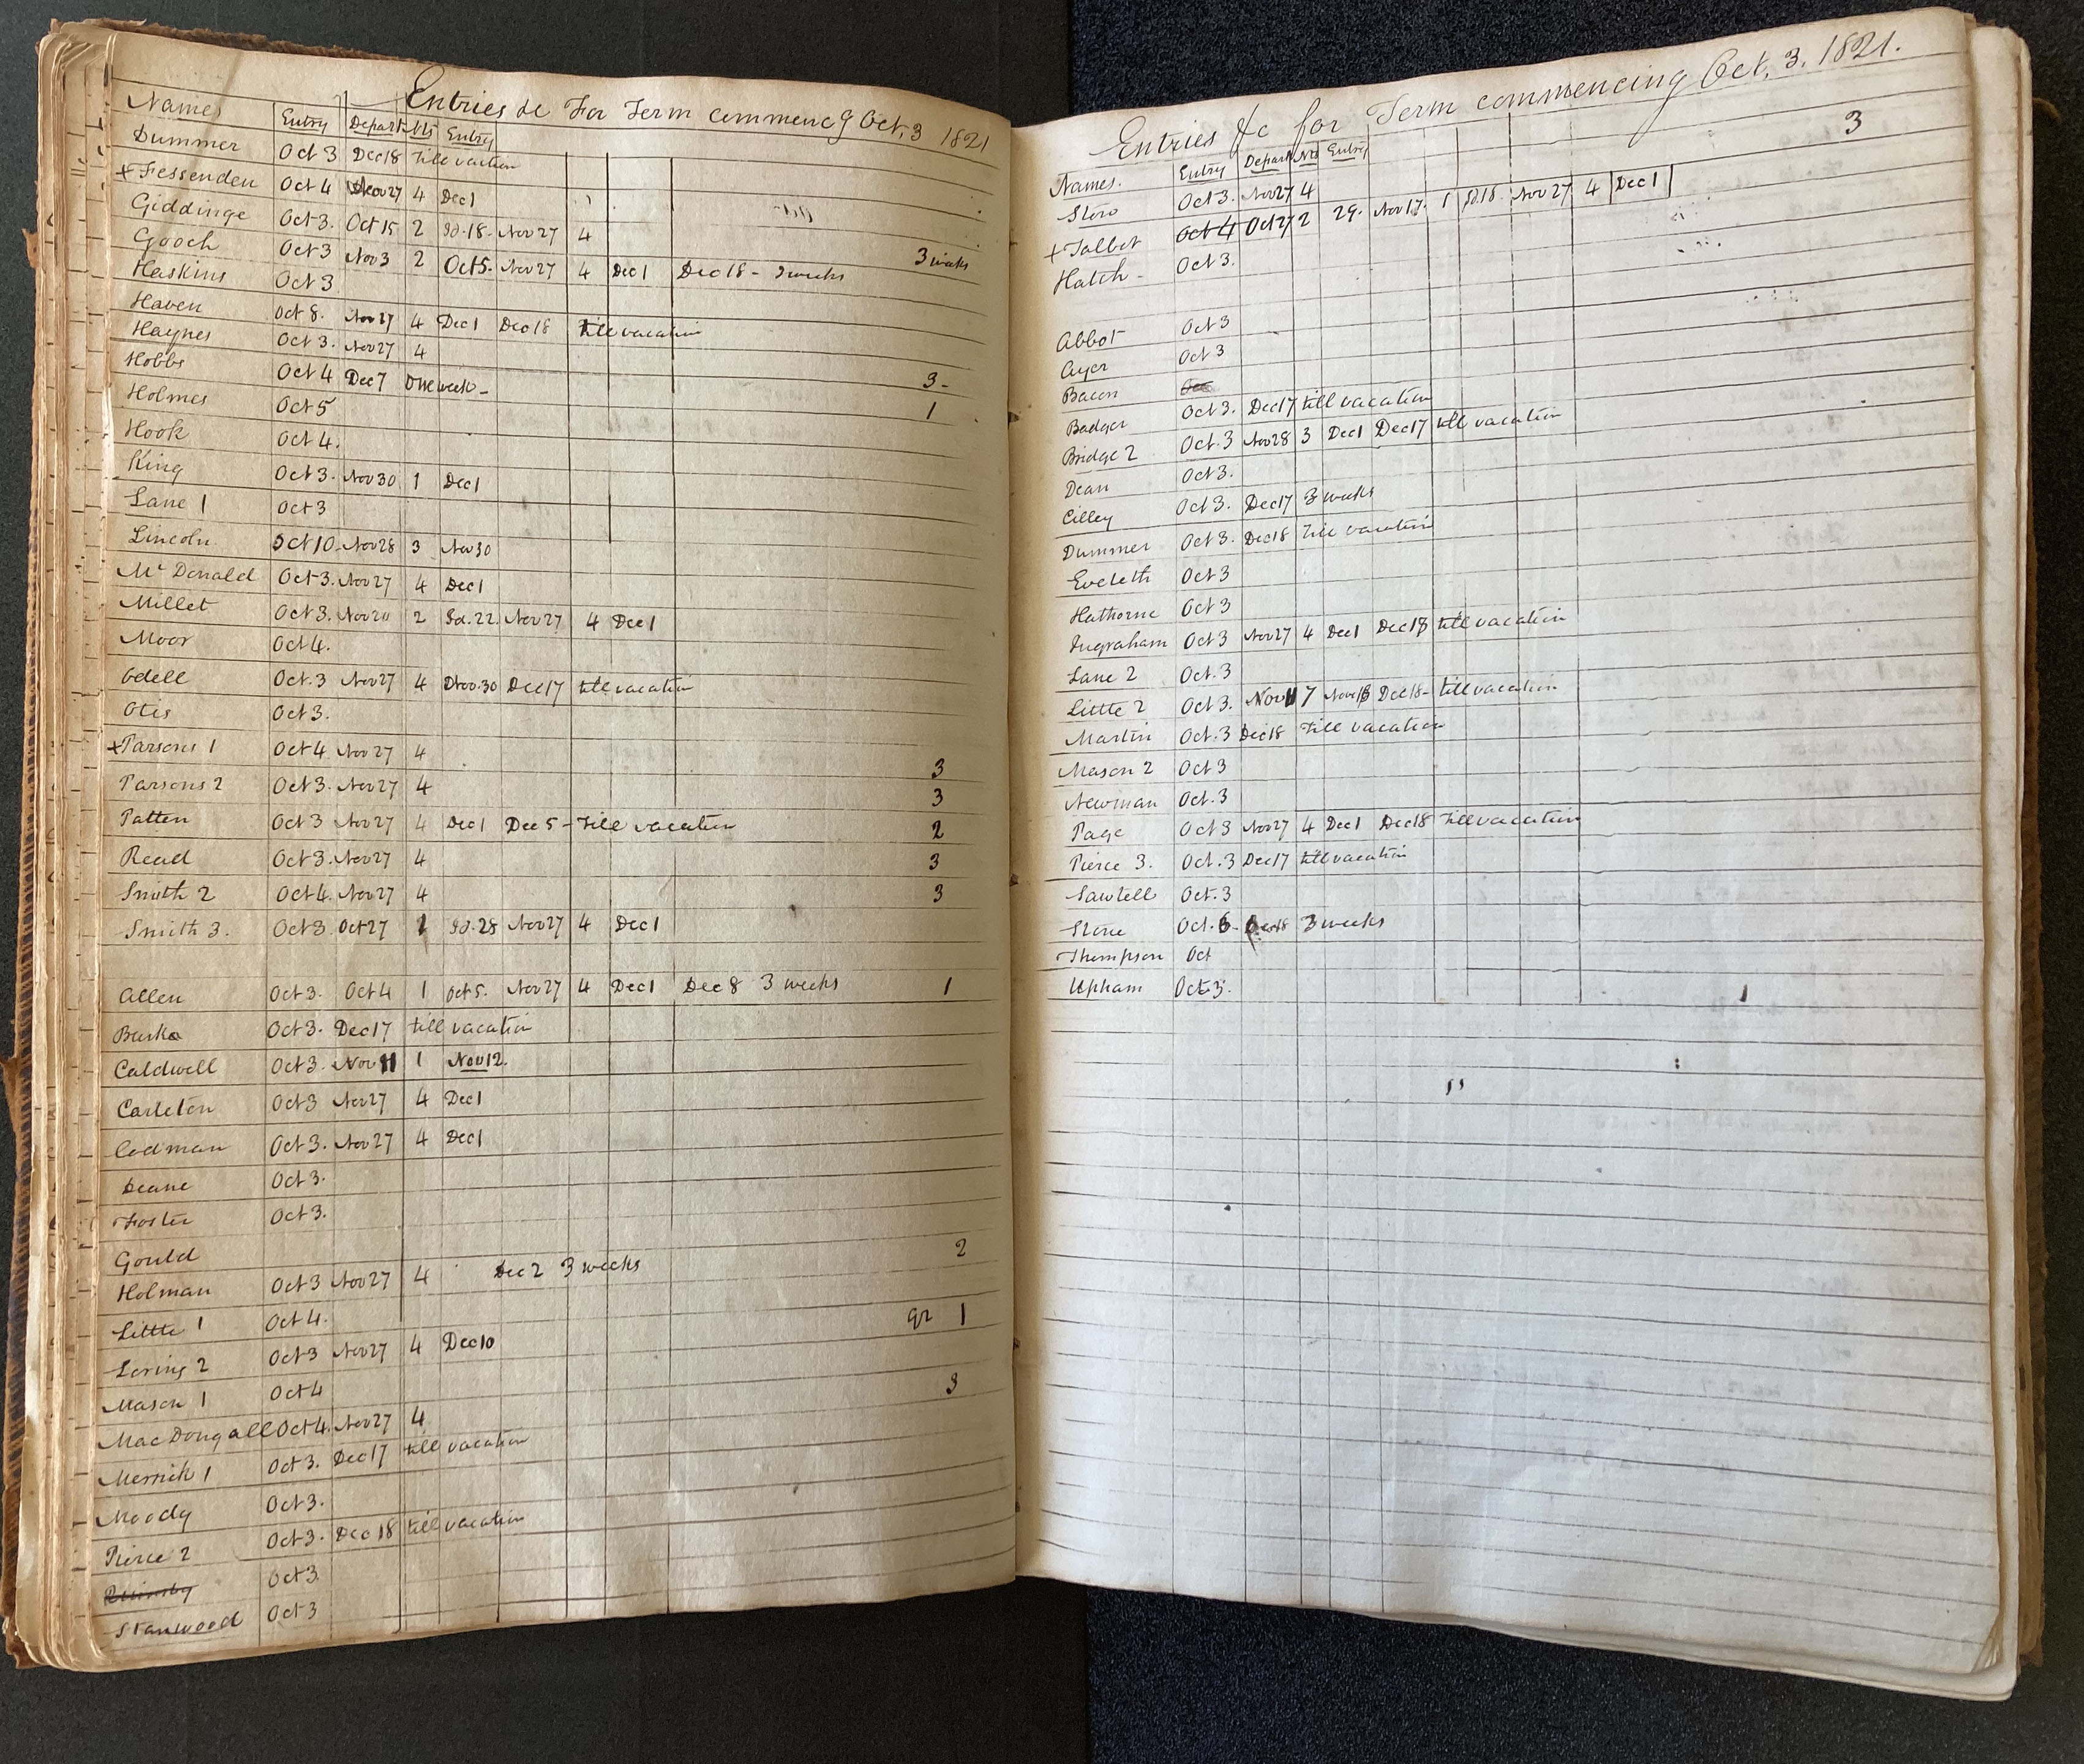 Entries &c For Term commencg Oct. 3 1821
Names Entry Depart Nts Entry
Dummer Oct 3 Dec 18 till vacation
+Fessenden Oct 4 Nov 27 4 Dec 1
Giddinge Oct 3. Oct 15 2 Id. 18. Nov 27 4
3 weeks
Gooch Oct 3 Nov 3 2 Oct 5. Nov 27 4 Dec 1 Dec 18 - 3 weeks
Haskins Oct 3
Haven Oct 8. Nov 27 4 Dec 1 Dec 18 till vacation
Haynes Oct 3. Nov 27 4 3-
Hobbs Oct 4 Dec 7 One week - 1
Holmes Oct 5
Hook Oct 4.
King Oct 3. Nov 30 1 Dec 1
Lane 1 Oct 3
Lincoln Oct 10. Nov 28 3 Nov 30
Mc Donald Oct 3. Nov 27 4 Dec 1
Millet Oct 3. Nov 20 2 Id. 22. Nov 27 4 Dec 1
Moor Oct 4.
Odell Oct. 3 Nov 27 4 Nov. 30 Dec 17 till vacation
Otis Oct 3.
+Parsons 1 Oct 4 Nov 27 4 3
Parsons 2 Oct 3. Nov 27 4 3
Patten Oct 3 Nov 27 4 Dec 1 Dec 5 - till vacation 2
Read Oct 3. Nov 27 4 3
Smith 2 Oct 4. Nov 27 4 3
Smith 3. Oct 3. Oct 27 1 Id. 28 Nov 27 4 Dec 1
Allen Oct 3. Oct 4 1 Oct 5. Nov 27 4 Dec 1 Dec 8 3 weeks 1
Oct 3. Dec 17 till vacation
Caldwell Oct 3. Nov 11 1 Nov 12.
Carleton Oct 3 Nov 27 4 Dec 1
Codman Oct 3. Nov 27 4 Dec 1
Deane Oct 3.
Foster Oct 3.
Gould
Holman Oct 3 Nov 27 4 Dec 2 3 weeks 2
Little 1 Oct 4.
Loring 2 Oct 3 Nov 27 4 Dec 10 qr 1
Mason 1 Oct 4
MacDougall Oct 4. Nov 27 4 3
Merrick 1 Oct 3. Dec 17 till vacation
Moody Oct 3.
Pierce 2 Oct 3. Dec 18 till vacation
Quimby Oct 3
Stanwood Oct 3
Entries &c for Term commencing Oct. 3. 1821.
Names. Entry Depart Nts Entry
3
Stow Oct 3. Nov 27 4
+Talbot Oct 4 Oct 27 2 29. Nov 17. 1 Id. 18. Nov 27 4 Dec 1
Hatch - Oct 3.
Abbot Oct 3
Ayer Oct 3
Bacon
Badger Oct 3. Dec 17 till vacation
Bridge 2 Oct. 3 Nov 28 3 Dec 1 Dec 17 till vacation
Dean Oct 3.
Cilley Oct 3. Dec 17 3 weeks
Dummer Oct 3. Dec 18 till vacation
Eveleth Oct 3
Hathorne Oct 3
Ingraham Oct 3 Nov 27 4 Dec 1 Dec 18 till vacation
Lane 2 Oct. 3
Little 2 Oct 3. Nov 11 7 Nov 18 Dec 18 - till vacation
Martin Oct. 3 Dec 18 till vacation
Mason 2 Oct 3
Newman Oct. 3
Page Oct 3 Nov 27 4 Dec 1 Dec 18 till vacation
Pierce 3. Oct. 3 Dec 17 till vacation
Sawtell Oct. 3
Stone Oct. 6. Dec 18 3 weeks
Thompson Oct
Upham Oct. 3.